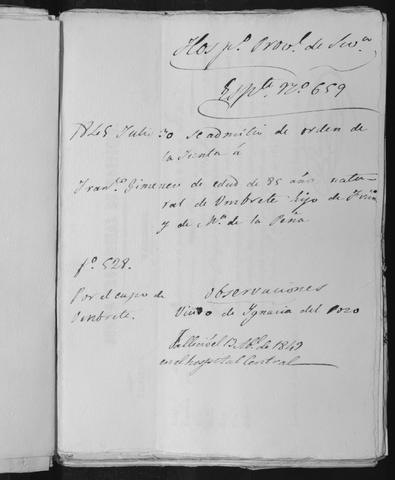 Hosp.l Prov.l de Sev.a
Esp.te N.o 659
1845 Julio 30 se admitió de orden de
la Junta á
Fran.co Gimenez de edad de 85 años natu
ral de Umbrete hijo de
y de M.a de la Peña
f.o 528.
Por el cupo de
Umbrete.
Observaciones
Viudo de Ignacia del Pozo
Falleció el 13 de 1849
en el hospital Central